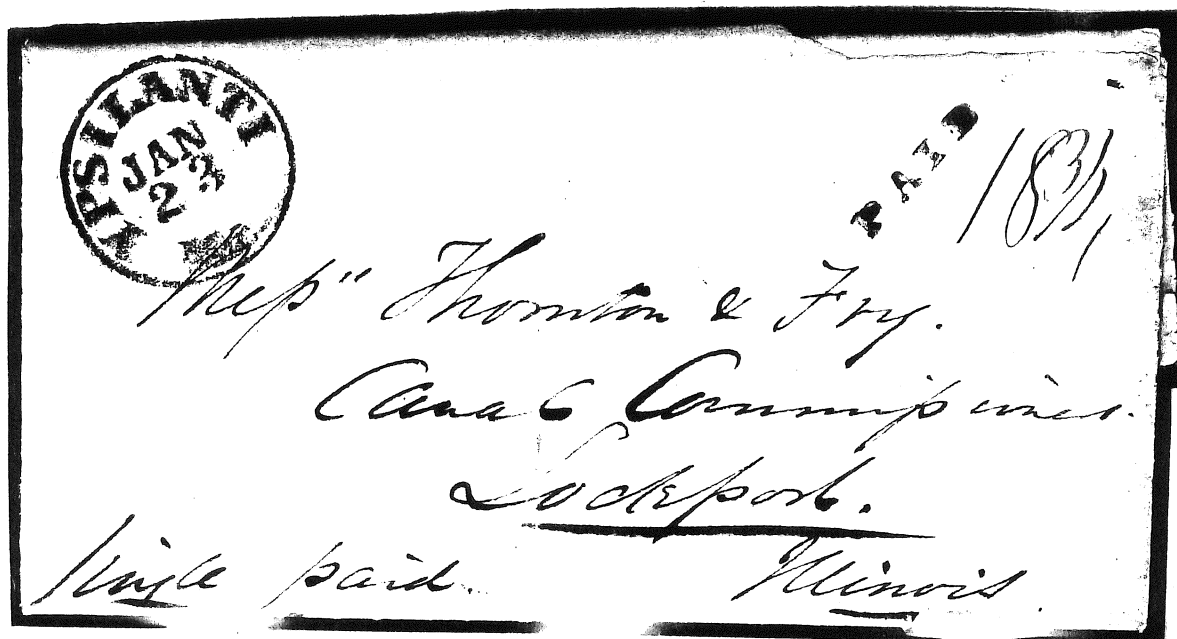 YPSILANTI
JAN
23
PAID
18 3/4
Mess" Thornton & Fry.
Canal Commissioners.
Lockport.
Illinois.
Single paid.